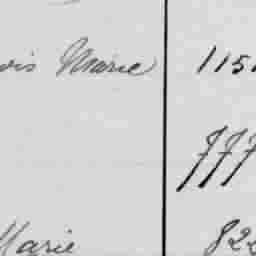 ois Marie 115
777
Marie 822